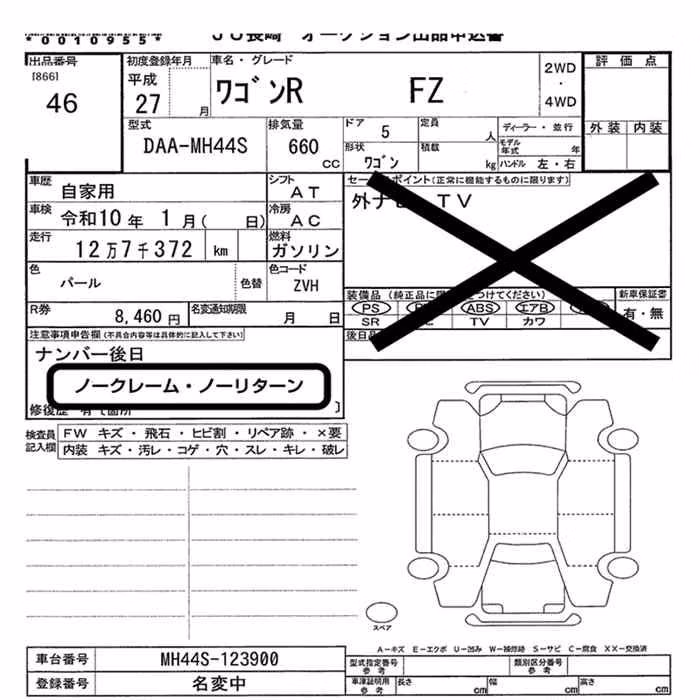 *0010955*
JU長崎 オークション出品申込書
出品番号 [866] 46
初度登録年月 平成 27 月
車名・グレード ワゴンR FZ
2WD・4WD
評価点
外装 内装
型式 DAA-MH44S
排気量 660 CC
ドア 5
定員 人
ディーラー・並行
形状 ワゴン
積載 kg
モデル年式 年
ハンドル 左・右
車歴 自家用
シフト AT
セー ポイント(正常に機能するものに限ります)
外ナ TV
車検 令和10年 1月( 日)
冷房 AC
走行 12万7千372 km
燃料 ガソリン
色 パール 色替
色コード ZVH
装備品 (純正品に つけてください)
新車保証書 有・無
PS ABS エアB
SR TV カワ
R券 8,460 円
名変通知期限 月 日
後日
注意事項申告欄 (不具合内容等は具体的に記入して下さい)
ナンバー後日
ノークレーム・ノーリターン
修復歴 有て箇所 〕
検査員記入欄
FW キズ・飛石・ヒビ割・リペア跡・×要
内装 キズ・汚レ・コゲ・穴・スレ・キレ・破レ
スペア
A-キズ E-エクボ U-凹み W-補修跡 S-サビ C-腐食 XX-交換済
車台番号 MH44S-123900
登録番号 名変中
型式指定番号 参考
類別区分番号 参考
車庫証明用 参考 長さ cm 幅 cm 高さ cm